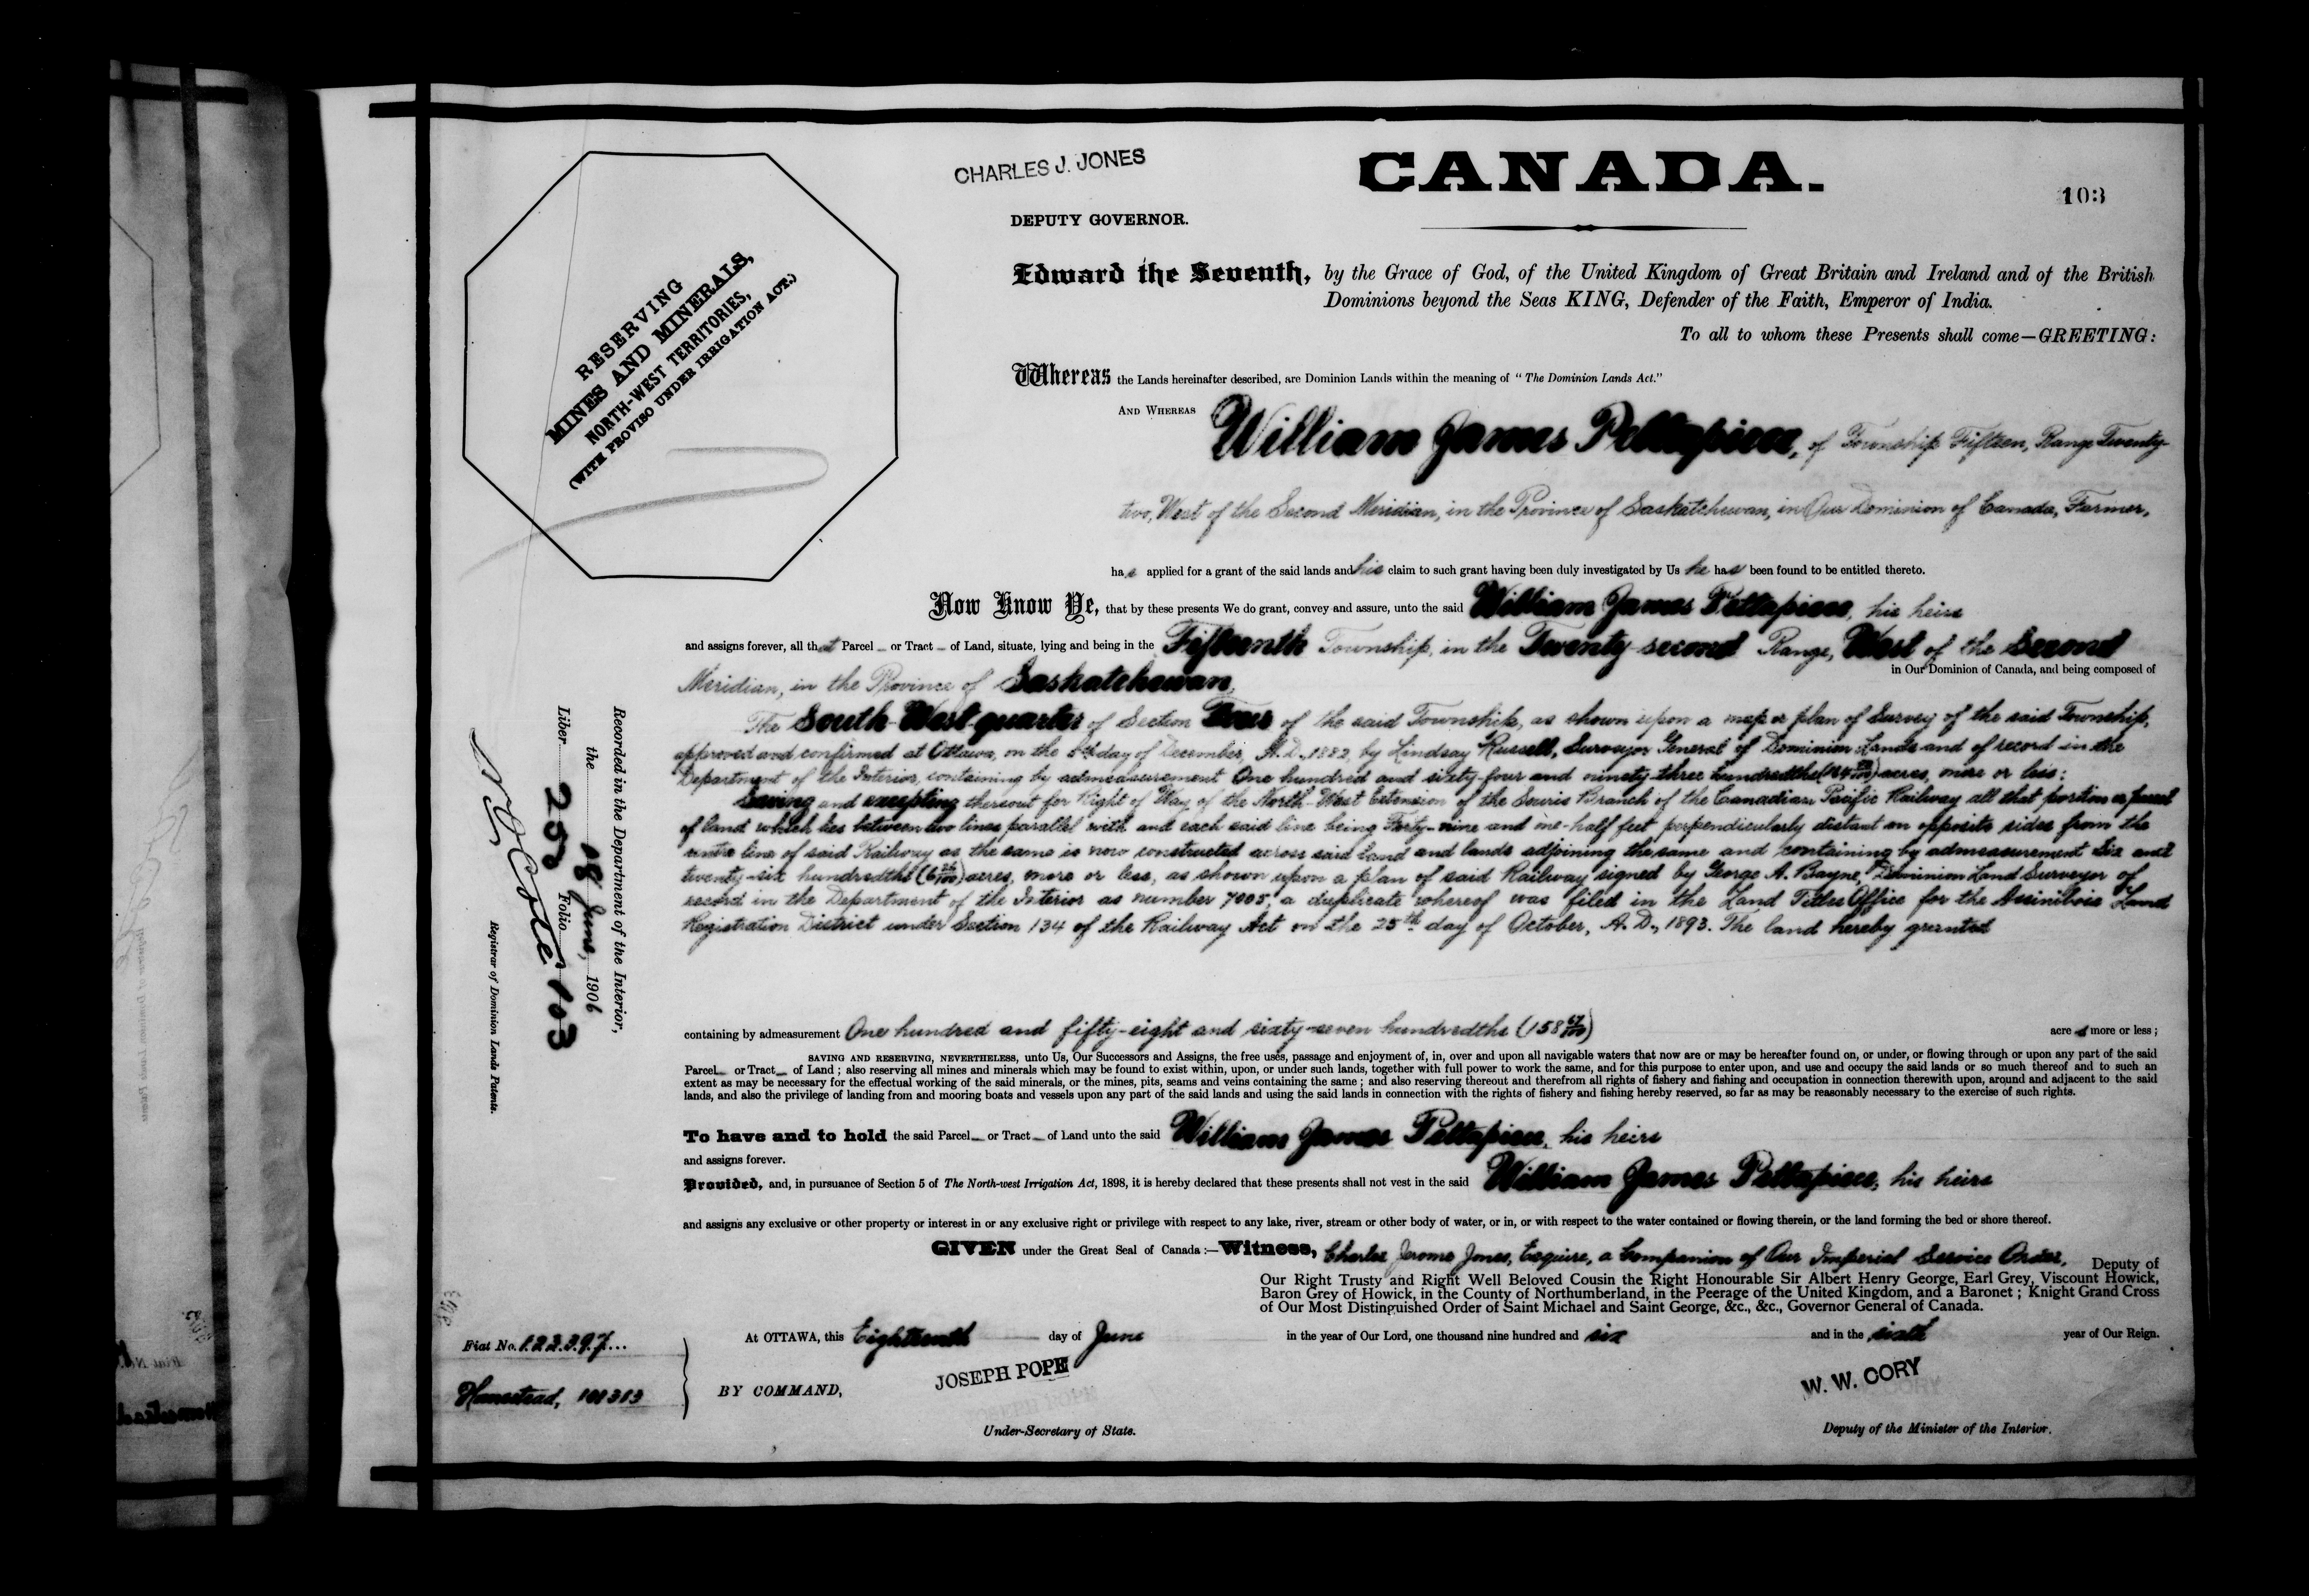 CHARLES J. JONES
CANADA.
103
DEPUTY GOVERNOR.
RESERVING
MINES AND MINERALS,
NORTH-WEST TERRITORIES,
(WITH PROVISO UNDER IRRIGATION ACT.)
Edward the Seventh, by the Grace of God, of the United Kingdom of Great Britain and Ireland and of the British
Dominions beyond the Seas KING, Defender of the Faith, Emperor of India.
To all to whom these Presents shall come—GREETING:
Whereas the Lands hereinafter described, are Dominion Lands within the meaning of "The Dominion Lands Act."
AND WHEREAS William James Pettapiece, of Township Fifteen, Range Twenty
two, West of the Second Meridian, in the Province of Saskatchewan, in Our Dominion of Canada, Farmer,
has applied for a grant of the said lands and his claim to such grant having been duly investigated by Us he has been found to be entitled thereto.
Now Know Ye, that by these presents We do grant, convey and assure, unto the said William James Pettapiece, his heirs
and assigns forever, all that Parcel or Tract of Land, situate, lying and being in the Fifteenth Township, in the Twenty-second Range, West of the Second
Meridian, in the Province of Saskatchewan, in Our Dominion of Canada, and being composed of
The South-West quarter of Section Four of the said Township, as shown upon a map or plan of Survey of the said Township,
approved and confirmed at Ottawa, on the day of December, A.D., 1882, by Lindsay Russell, Surveyor General of Dominion Lands and of record in the
Department of the Interior, containing by admeasurement One hundred and sixty-four and ninety-three hundredths (164 93/100) acres, more or less:
Saving and excepting thereout for Right of Way of the North-West Extension of the Souris Branch of the Canadian Pacific Railway all that portion or parcel
of land which lies between two lines parallel with and each said line being Forty-nine and one-half feet perpendicularly distant on opposite sides from the
centre line of said Railway as the same is now constructed across said land and lands adjoining the same and containing by admeasurement Six and
twenty-six hundredths (6 26/100) acres, more or less, as shown upon a plan of said Railway signed by George A. Bayne, Dominion Land Surveyor of
record in the Department of the Interior as number 7005, a duplicate whereof was filed in the Land Titles Office for the Assiniboia Land
Registration District under Section 134 of the Railway Act on the 25th day of October, A.D., 1893. The land hereby granted
containing by admeasurement One hundred and fifty-eight and sixty-seven hundredths (158 67/100) acres more or less;
SAVING AND RESERVING, NEVERTHELESS, unto Us, Our Successors and Assigns, the free uses, passage and enjoyment of, in, over and upon all navigable waters that now are or may be hereafter found on, or under, or flowing through or upon any part of the said
Parcel or Tract of Land; also reserving all mines and minerals which may be found to exist within, upon, or under such lands, together with full power to work the same, and for this purpose to enter upon, and use and occupy the said lands or so much thereof and to such an
extent as may be necessary for the effectual working of the said minerals, or the mines, pits, seams and veins containing the same; and also reserving thereout and therefrom all rights of fishery and fishing and occupation in connection therewith upon, around and adjacent to the said
lands, and also the privilege of landing from and mooring boats and vessels upon any part of the said lands and using the said lands in connection with the rights of fishery and fishing hereby reserved, so far as may be reasonably necessary to the exercise of such rights.
To have and to hold the said Parcel or Tract of Land unto the said William James Pettapiece, his heirs
and assigns forever.
Provided, and, in pursuance of Section 5 of The North-west Irrigation Act, 1898, it is hereby declared that these presents shall not vest in the said William James Pettapiece, his heirs
and assigns any exclusive or other property or interest in or any exclusive right or privilege with respect to any lake, river, stream or other body of water, or in, or with respect to the water contained or flowing therein, or the land forming the bed or shore thereof.
GIVEN under the Great Seal of Canada:—Witness, Charles Jerome Jones, Esquire, a Companion of Our Imperial Service Order, Deputy of
Our Right Trusty and Right Well Beloved Cousin the Right Honourable Sir Albert Henry George, Earl Grey, Viscount Howick,
Baron Grey of Howick, in the County of Northumberland, in the Peerage of the United Kingdom, and a Baronet; Knight Grand Cross
of Our Most Distinguished Order of Saint Michael and Saint George, &c., &c., Governor General of Canada.
At OTTAWA, this Eighteenth day of June in the year of Our Lord, one thousand nine hundred and six and in the sixth year of Our Reign.
BY COMMAND,
JOSEPH POPE
Under-Secretary of State.
W. W. CORY
Deputy of the Minister of the Interior.
Fiat No. 122397
Homestead, 101313
Recorded in the Department of the Interior,
the 18 June, 1906
Liber 250 Folio 103
N O Coté
Registrar of Dominion Lands Patents.